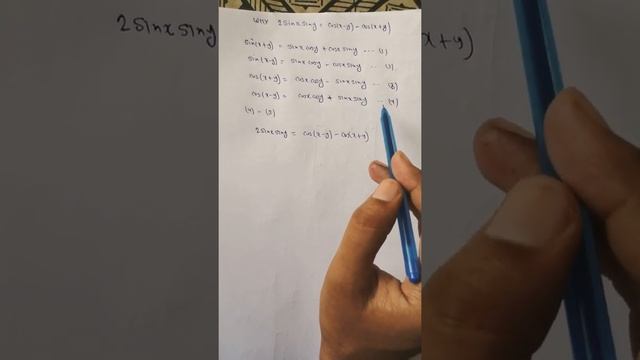 WHY 2sinx siny = cos(x-y) - cos(x+y)
sin(x+y) = sinx cosy + cosx siny --- (1)
sin(x-y) = sinx cosy - cosx siny --- (2)
cos(x+y) = cosx cosy - sinx siny --- (3)
cos(x-y) = cosx cosy + sinx siny --- (4)
(4) - (3)
2sinx siny = cos(x-y) - cos(x+y)
2sinx siny
x+y)